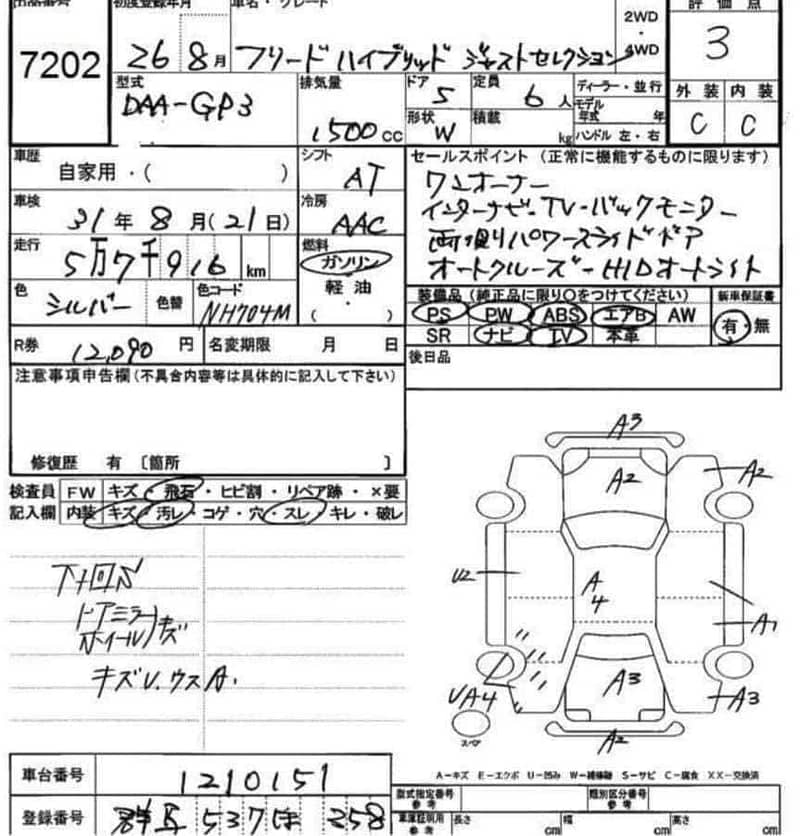 出品番号 初度登録年月 車名・グレード 評価点
7202 26 8月 フリード ハイブリッド ジャストセレクション 2WD・4WD 3
型式 DAA-GP3 排気量 1500cc ドア 5 定員 6人 ディーラー・並行
形状 W 積載 kg モデル年式 年 ハンドル 左・右
外装 内装
C C
車歴 自家用・( ) シフト AT
車検 31年8月(21日) 冷房 AAC
走行 5万7千916km 燃料 ガソリン
軽・油
( )
色 シルバー 色替 色コード NH704M
R券 12,090円 名変期限 月 日
セールスポイント(正常に機能するものに限ります)
ワンオーナー
インターナビ・TV・バックモニター
両側パワースライドドア
オートクルーズ-HIDオートライト
装備品(純正品に限り○をつけてください) 新車保証書
PS PW ABS エアB AW 有・無
SR ナビ TV 本革
後日品
注意事項申告欄(不具合内容等は具体的に記入して下さい)
修復歴 有 〔箇所 〕
検査員 FW キズ・飛石・ヒビ割・リペア跡・×要
記入欄 内装 キズ・汚レ・コゲ・穴・スレ・キレ・破レ
ドアミラー
ホイール キズ
キズU.ウスA.
A3
A2 A2
U2 A4 A1
UA4 A3 A3
A2
スペア
A-キズ E-エクボ U-凹み W-補修跡 S-サビ C-腐食 XX-交換済
車台番号 1210151
登録番号 群馬 537 ほ 258
型式指定番号 参考 類別区分番号 参考
車庫証明用 参考 長さ cm 幅 cm 高さ cm